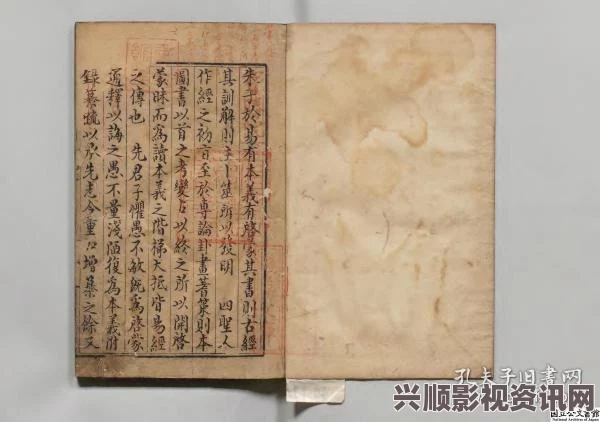 朱子於易有本義有啓蒙其書則古經
其訓解則主卜筮所以發明　四聖人
作經之初旨至於專論卦畫蓍策則本
圖書以首之考變占以終之所以開啓
蒙昧而為讀本義之階梯大抵皆易經
之傳也　先君子懼愚不敏既為啓蒙
通釋以誨之愚不量淺陋復為本義附
錄纂疏以承先志今重加增纂之餘又
孔夫子旧書网
兴顺影视资讯网
国立公文書館
National Archives of Japan